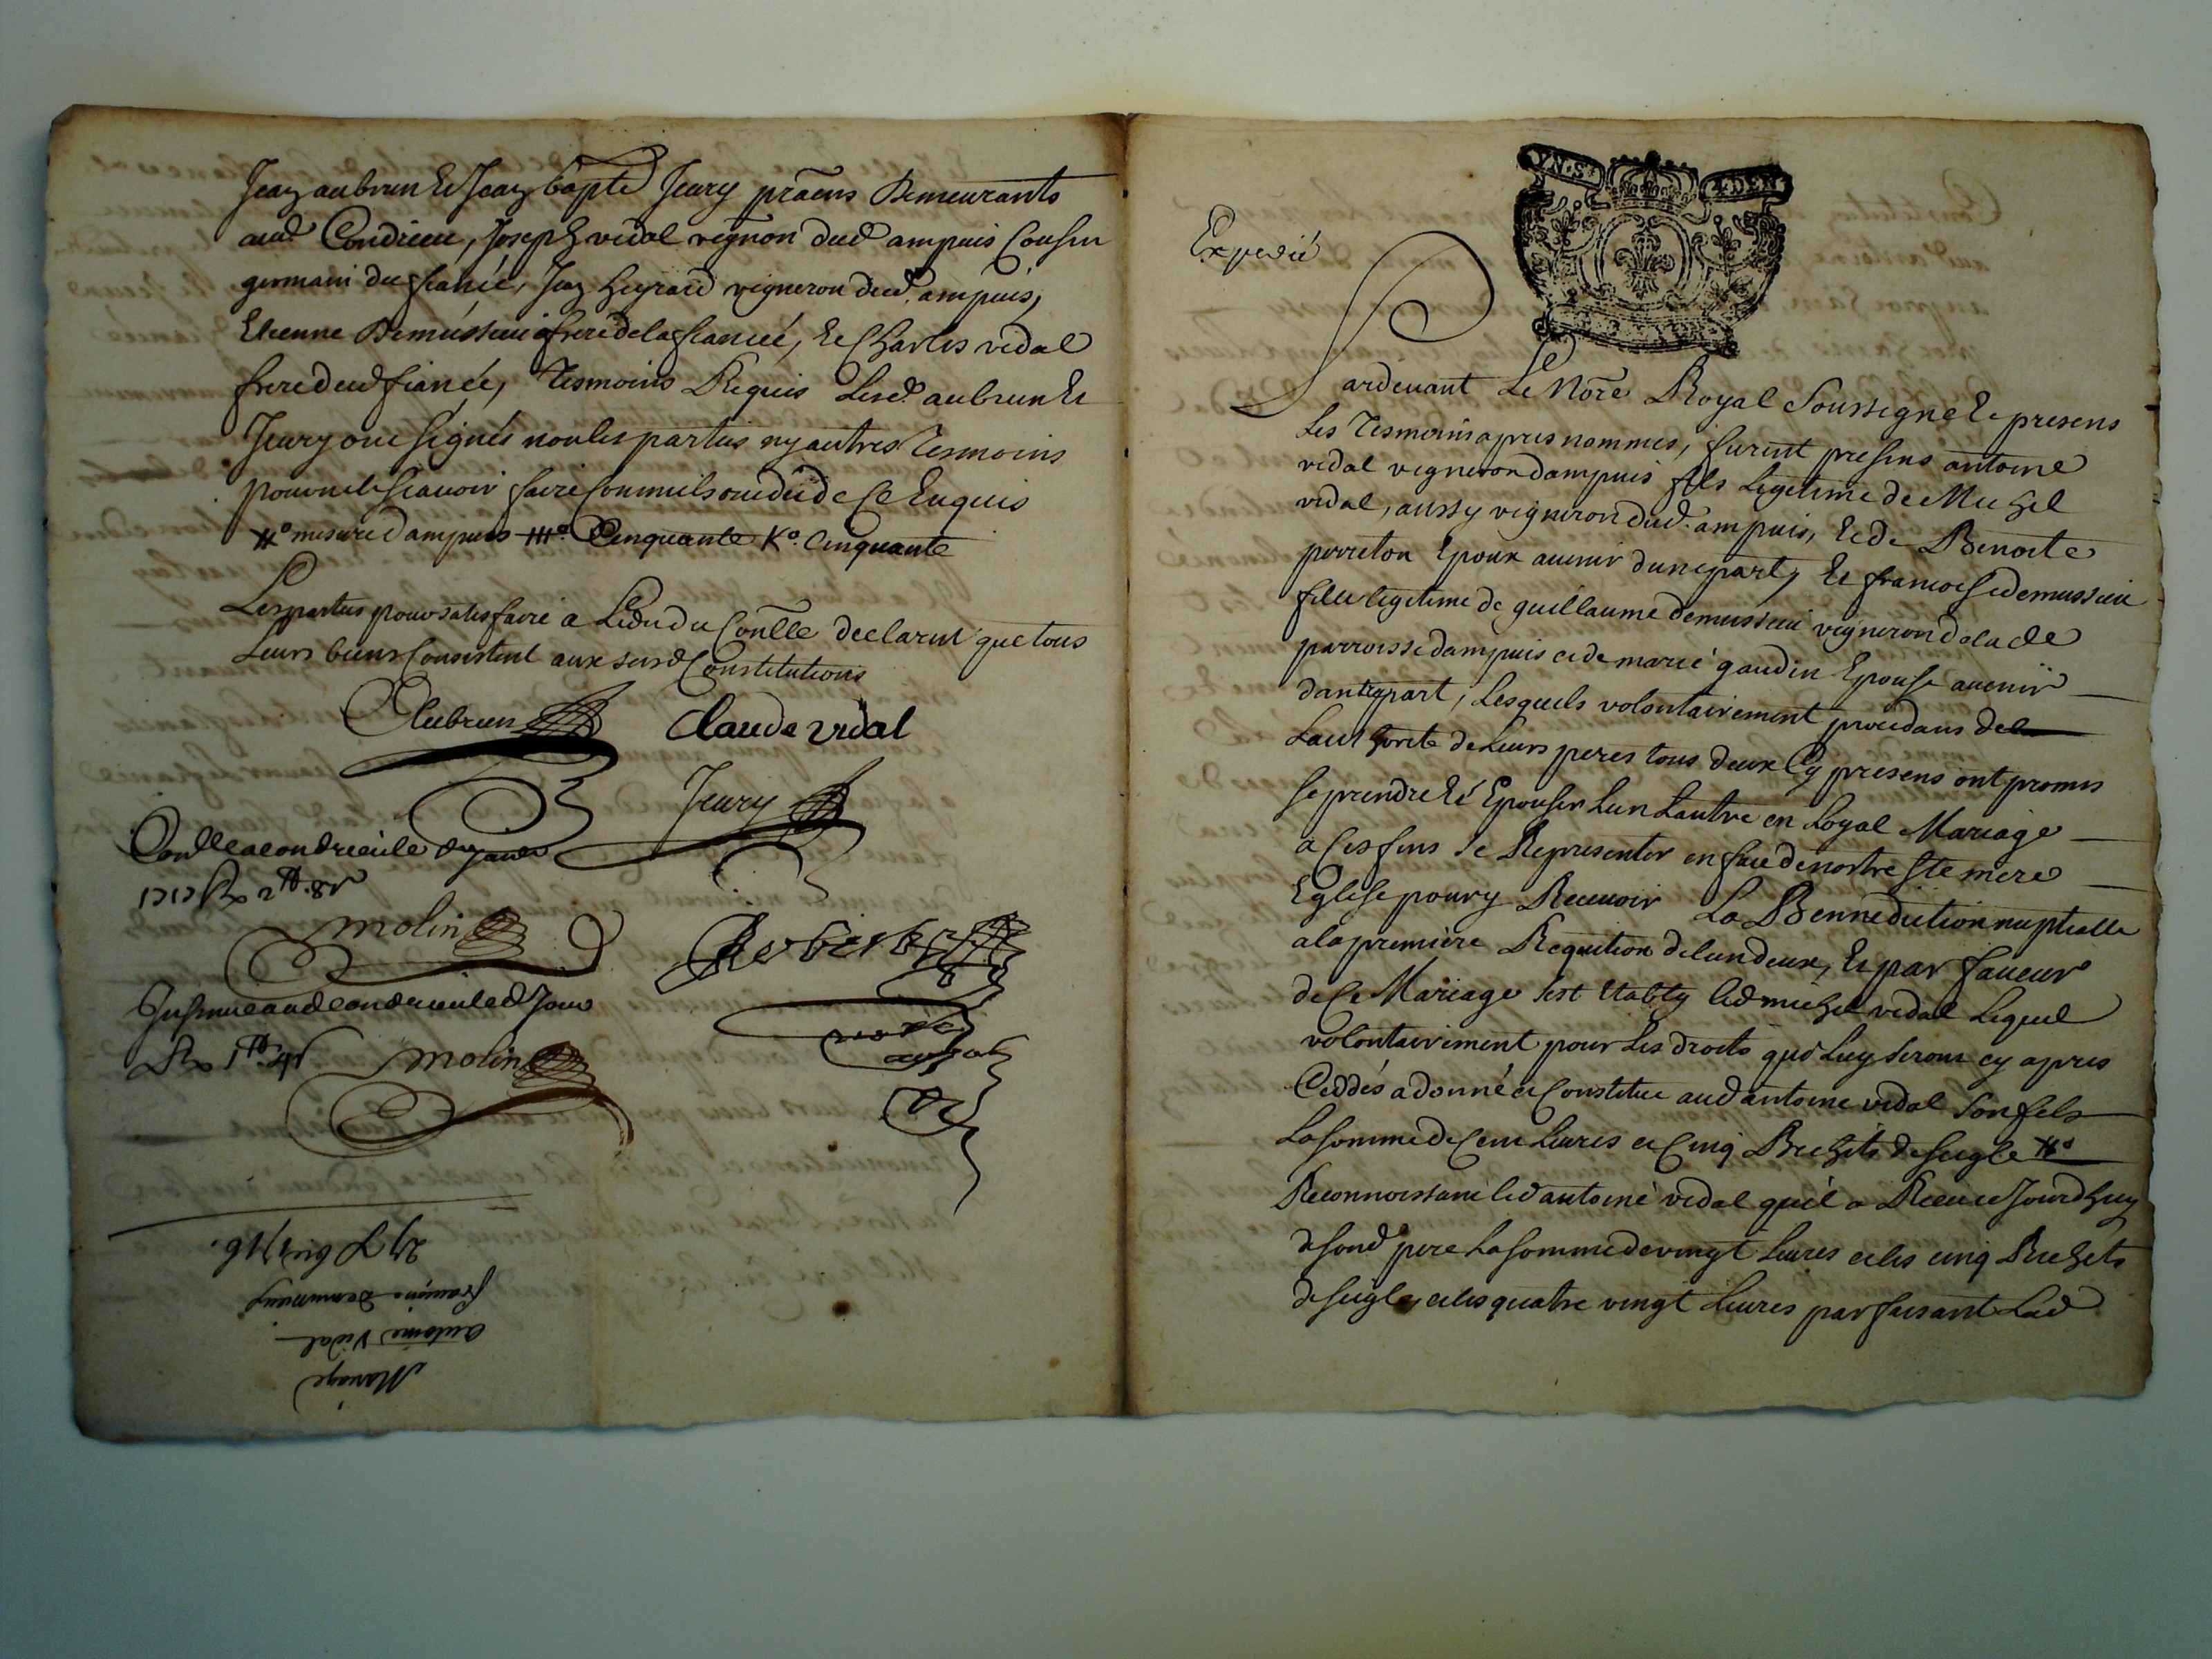 Jean aubrun Et Jean bapte Jeury praens Demeurants
aud Condrieu, Joseph vidal vignon dud ampuis Cousin
germain du fiancé, Jean heyraud vigneron dud. ampuis,
Etienne Demussieu frere de la fiancée, Et Charles vidal
frere dud fiancée, Tesmoins Requis Lesd. aubrun Et
Jeury ont signés non les parties ny autres Tesmoins
pour ne le scavoir faire Comm ils ont dit de Ce Enquis
mesure dampuis Cinquante Ko. Cinquante
Les parties pour satisfaire a Ledit du Conlle declarent que tous
Leurs biens Consistent aux susd Constitutions
Aubrun
Claude vidal
Jeury
Conlle a condrieu le
molin
Insinué aud condrieu led Jour
Rx 1tt
molin
Mariage
antoine Vidal
françoise Demussieu
27 1716.
Expedié
YN.S
4.DEN
Pardevant Le Nore Royal Soussigné Et presens
Les Tesmoins apres nommes, furent presens antoine
vidal vigneron dampuis fils Legitime de Michel
vidal, aussy vigneron dud. ampuis, Et de Benoite
perreton Epoux avenir dune part, Et francoise demussieu
fille legitime de guillaume demussieu vigneron de lade
parroisse dampuis et de marie gaudin Epouse avenir
dautre part, Lesquels volontairement procedans de
Lauthorité de Leurs peres tous deux Cy presens ont promis
se prendre Et Epouser Lun Lautre en Loyal Mariage
a Ces fins se Representer en face de nostre Ste mere
Eglise pour y Recevoir La Bennediction nuptialle
a la premiere Requition de lun deux, Et par faveur
de Ce Mariage sest Etably led michel vidal Lequel
volontairement pour Les droits qui Luy seront cy apres
Ceddés a donné et Constitue aud antoine vidal son fils
La somme de Cent Livres et Cinq Bichets de seigle
Reconnoissant led antoine vidal quil a Receu ce Jourdhuy
de sond pere La somme de vingt Livres et les cinq Bichets
de seigle, et les quatre vingt Livres parfaisant Lad